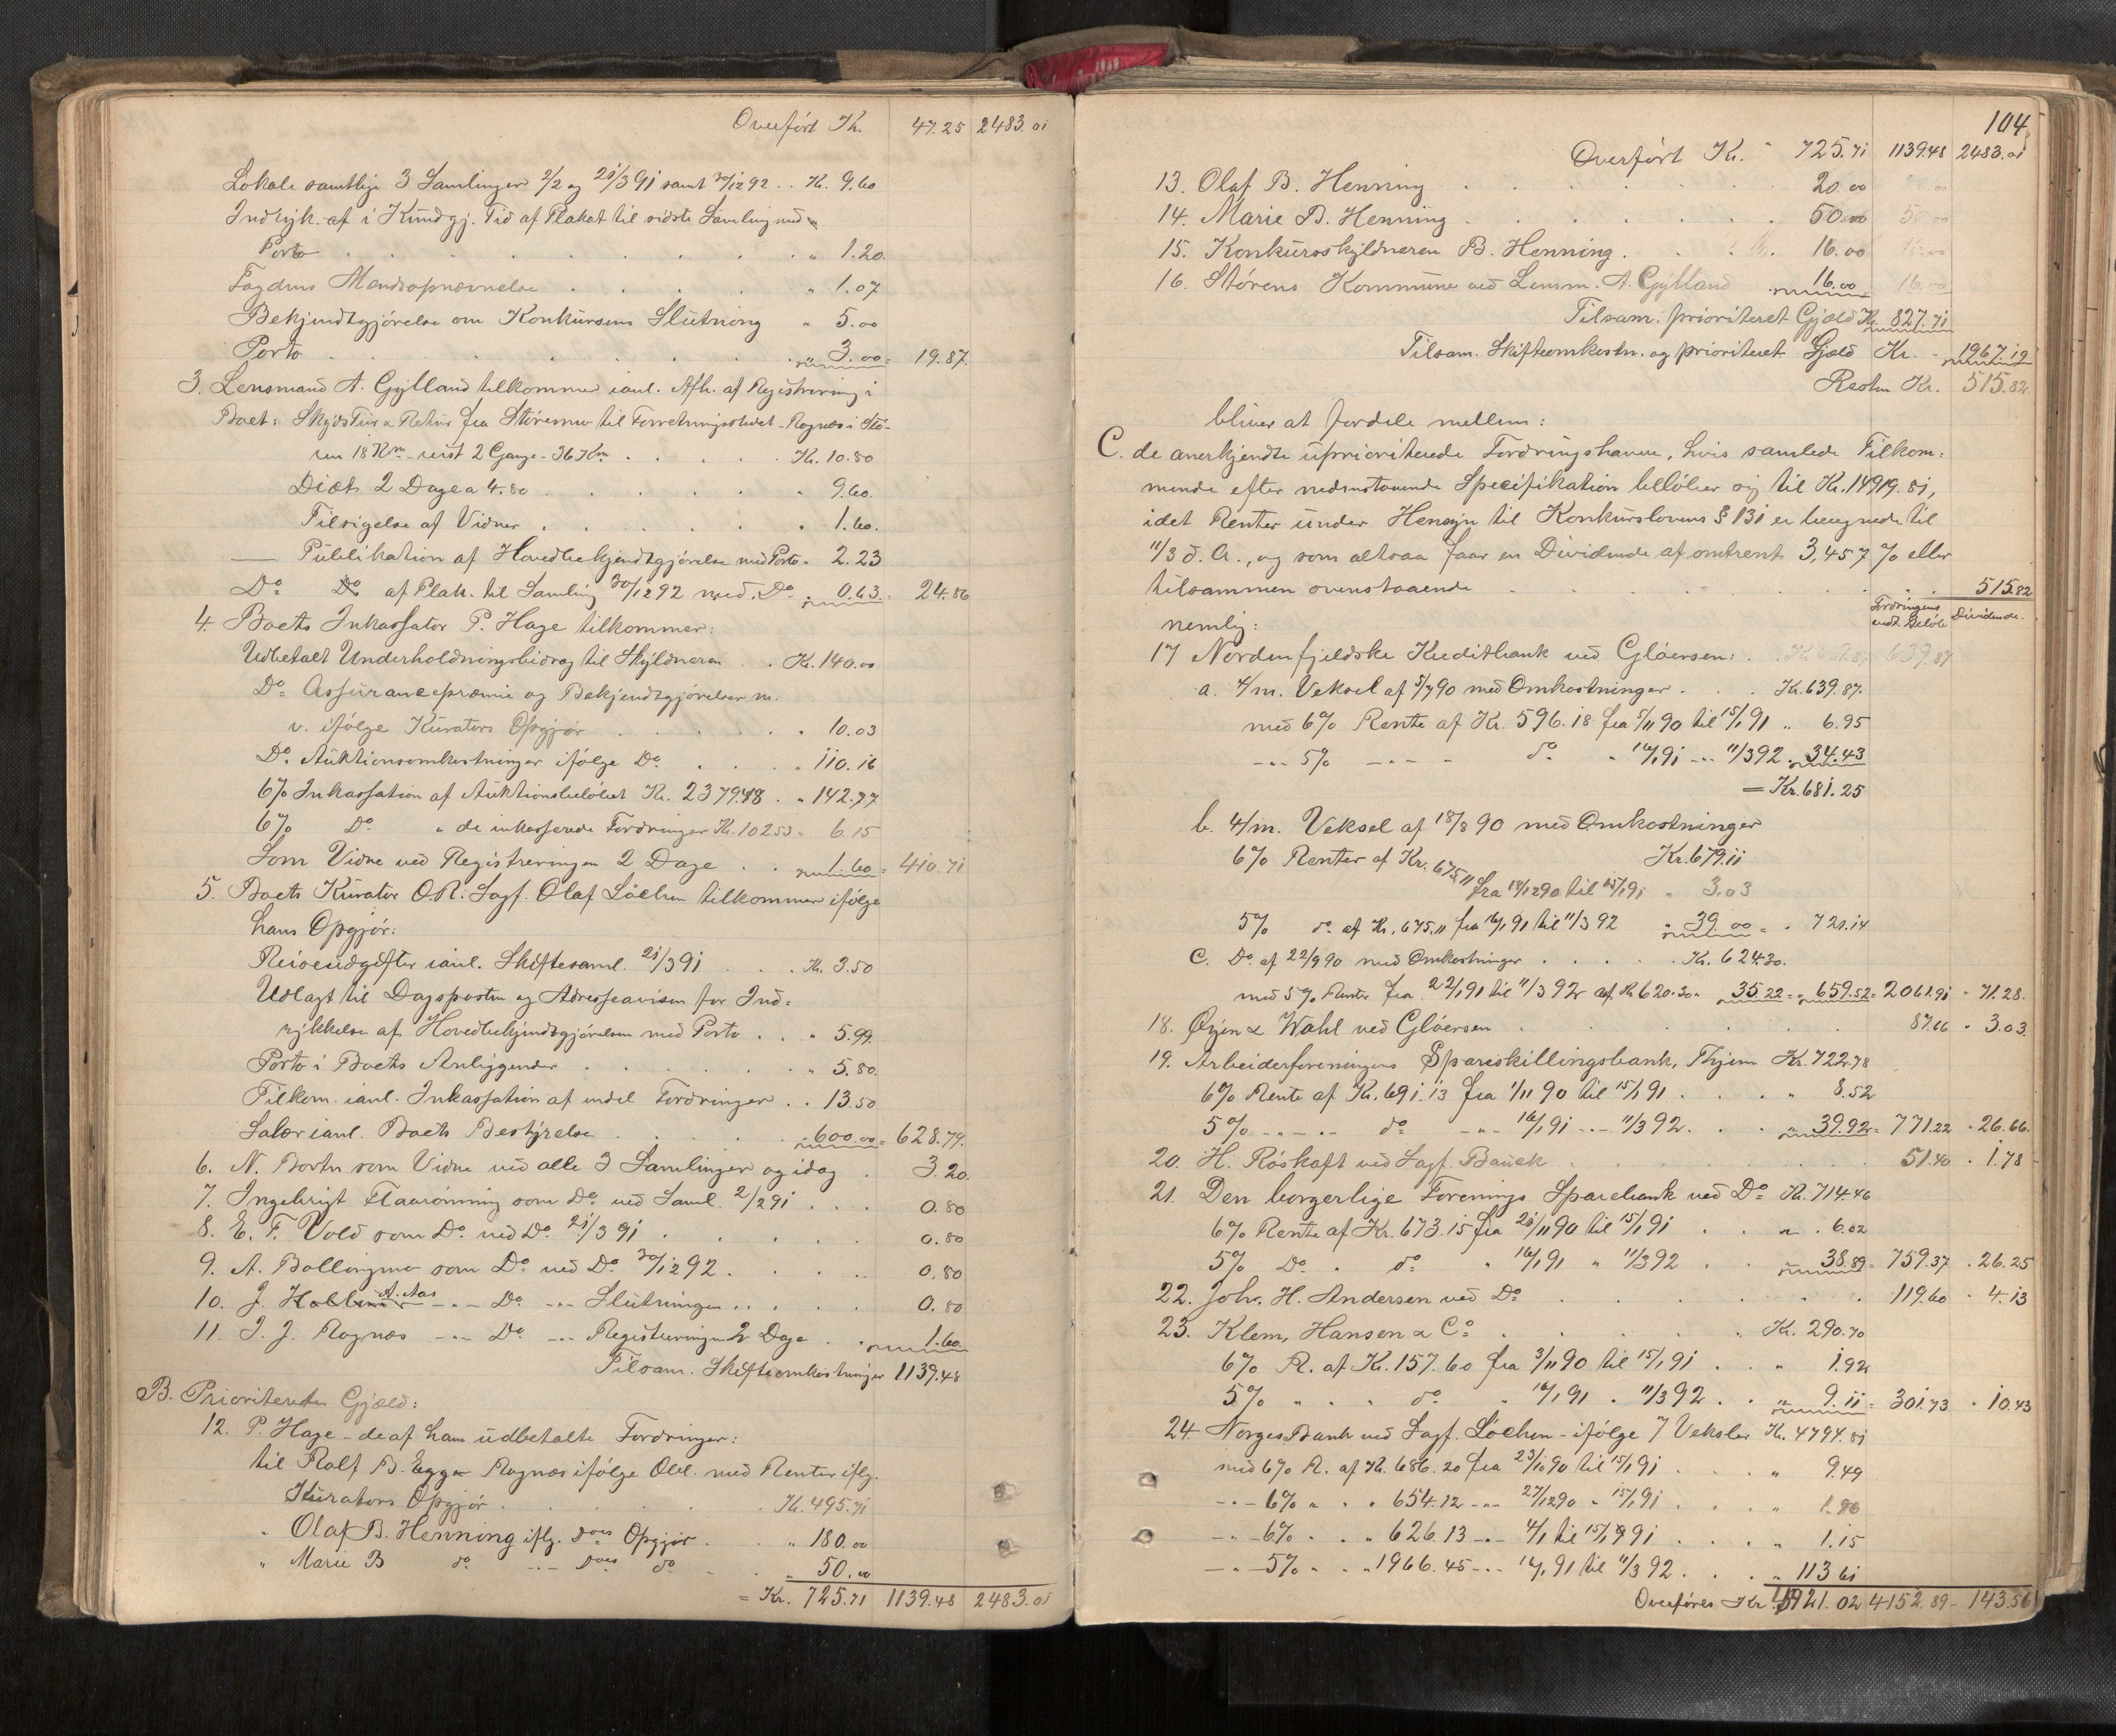 Overført Kr. 47.25 2483.01
Lokale samtlige 3 Samlinger 2/2 og 21/3 91 samt 30/12 92 . . Kr. 9.60
Indryk. af i Kundgj. Tid af Plakat til sidste Samling med
Porto " 1.20.
Fogdens Mændsopnævnelse " 1.07
Bekjendtgjørelse om Konkursens Slutning " 5.00
Porto " 3.00 = 19.87.
3. Lensmand A. Gylland tilkommer ianl. Afh. af Registrering i
Boet: Skyds Tur & Retur fra Støren til Forretningsstedet Rognæs i Stø-
ren 18 Km - reist 2 Gange - 36 Km Kr. 10.80
Diæt 2 Dage a 4.80 " 9.60.
Tilsigelse af Vidner " 1.60.
— Publikation af Hovedbekjendtgjørelse med Porto " 2.23
Do Do af Plak. til Samling 30/12 92 med Do " 0.63 = 24.86
4. Boets Inkassator P. Hage tilkommer:
Udbetalt Underholdningsbidrag til Skyldneren . . Kr. 140.00
Do Assurancepræmie og Bekjendtgjørelser m.
v. ifølge Kurators Opgjør " 10.03
Do Auktionsomkostninger ifølge Do " 110.16
6% Inkassation af Auktionsbeløbet Kr. 2379.48 . " 142.77
6% Do " de inkasserede Fordringer Kr. 102.53 " 6.15
Som Vidne ved Registreringen 2 Dage . . 1.60 = 410.71
5. Boets Kurator O.R. Sagf. Olaf Løchen tilkommer ifølge
hans Opgjør:
Reiseudgifter ianl. Skiftesaml. 21/3 91 Kr. 3.50
Udlagt til Dagsposten og Adresseavisen for Ind-
rykkelse af Hovedbekjendtgjørelsen med Porto . . " 5.99.
Porto i Boets Anliggender " 5.80.
Tilkom. ianl. Inkassation af endel Fordringer . . 13.50
Salær ianl. Boets Bestyrelse 600.00 = 628.79.
6. N. Borten som Vidne ved alle 3 Samlinger og idag . 3.20.
7. Ingebrigt Flaarønning som Do ved Saml. 2/2 91 . . . 0.80
8. E. F. Vold som Do ved Do 21/3 91 0.80
9. A. Bollingmo som Do ved Do 30/12 92 0.80
10. J. A. Aas -"- Do -"- Slutningen . . 0.80
11. J. J. Rognæs -"- Do -"- Registreringen 2 Dage . . 1.60
Tilsam. Skifteomkostninger 1139.48
B. Prioriteret Gjæld:
12. P. Hage - de af ham udbetalte Fordringer:
til Rolf B. Egga Rognæs ifølge Obl. med Renter iflg.
Kurators Opgjør Kr. 495.71
" Olaf B. Henning iflg. does Opgjør . . " 180.00
" Marie B do -"- does do " 50.00
= Kr. 725.71 1139.48 2483.01
104
Overført Kr. " 725.71 1139.48 2483.01
13. Olaf B. Henning 20.00
14. Marie B. Henning 50.00 50.00
15. Konkursskyldneren B. Henning 16.00 16.00
16. Størens Kommune ved Lensm. A. Gylland 16.00 16.00
Tilsam. prioriteret Gjæld Kr. 827.71
Tilsam. Skifteomkostn. og prioriteret Gjæld Kr. - 1967.19
Resten Kr. 515.82
bliver at fordele mellem:
C. de anerkjendte uprioriterede Fordringshavere, hvis samlede Tilkom-
mende efter nedenstaaende Specifikation beløber sig til Kr. 14919.81,
idet Renter under Hensyn til Konkurslovens § 131 er beregnede til
11/3 d. A., og som altsaa faar en Dividende af omtrent 3,457 % eller
tilsammen ovenstaaende 515.82
nemlig: Fordringens Beløb Dividende.
17 Nordenfjeldske Kreditbank ved Gløersen: 639.87
a. 4/m. Veksel af 5/7 90 med Omkostninger . . . Kr. 639.87.
med 6% Rente af Kr. 596.18 fra 5/11 90 til 15/1 91 " 6.95
-"- 5% -"- - do " 16/1 91 -"- 11/3 92 . 34.43
= Kr. 681.25
b. 4/m. Veksel af 18/8 90 med Omkostninger
6% Renter af Kr. 675.11 Kr. 679.11
fra 18/12 90 til 15/1 91 " 3.03
5% do af Kr. 675.11 fra 16/1 91 til 11/3 92 " 39.00 = . 721.14
c. Do af 22/9 90 med Omkostninger Kr. 624.30.
med 5% Renter fra 22/1 91 til 11/3 92 af Kr. 620.30 " 35.22 = " 659.52 = 2061.91 . 71.28.
18. Øyen & Wahl ved Gløersen 87.66 . 3.03.
19. Arbeiderforeningens Spareskillingsbank, Thjem Kr. 722.78
6% Rente af Kr. 691.13 fra 1/11 90 til 15/1 91 " 8.52
5% -"- -"- do -"- 16/1 91 -"- 11/3 92. . . " 39.92 = 771.22 . 26.66.
20. H. Røskaft ved Sagf. Bauck 51.40 . 1.78
21. Den borgerlige Forenings Sparebank ved Do Kr. 714.46
6% Rente af Kr. 673.15 fra 21/11 90 til 15/1 91 . . " . 6.02
5% Do . do " 16/1 91 " 11/3 92 . . 38.89 = 759.37 . 26.25
22. Joh. H. Andersen ved Do 119.60 . 4.13
23. Klem, Hansen & Co Kr. 290.70
6% R. af Kr. 157.60 fra 3/11 90 til 15/1 91 . . " 1.92
5% " " . do " 16/1 91 " 11/3 92 . . " 9.11 = 301.73 . 10.43
24 Norges Bank ved Sagf. Løchen - ifølge 7 Veksler Kr. 4794.81
med 6% R. af Kr. 686.20 fra 23/10 90 til 15/1 91 " 9.49
-"- 6% " . . 654.12 -"- 27/12 90 " 15/1 91 " 1.96
-"- 6% . . " 626.13 -"- 4/1 til 15/1 91 " 1.15
-"- 5% " . " 1966.45 -"- 16/1 91 til 11/3 92 . . . " 113.61
Overføres Kr. 4921.02 4152.89 - 143.56